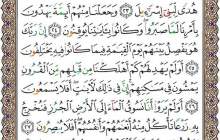 هُدًى لِّبَنِىٓ إِسْرَٰٓءِيلَ ﴿٢٣﴾ وَجَعَلْنَا مِنْهُمْ أَئِمَّةً يَهْدُونَ
بِأَمْرِنَا لَمَّا صَبَرُوا۟ وَكَانُوا۟ بِـَٔايَٰتِنَا يُوقِنُونَ ﴿٢٤﴾ إِنَّ رَبَّكَ
هُوَ يَفْصِلُ بَيْنَهُمْ يَوْمَ ٱلْقِيَٰمَةِ فِيمَا كَانُوا۟ فِيهِ يَخْتَلِفُونَ
﴿٢٥﴾ أَوَلَمْ يَهْدِ لَهُمْ كَمْ أَهْلَكْنَا مِن قَبْلِهِم مِّنَ ٱلْقُرُونِ
يَمْشُونَ فِى مَسَٰكِنِهِمْ إِنَّ فِى ذَٰلِكَ لَءَايَٰتٍ أَفَلَا يَسْمَعُونَ
﴿٢٦﴾ أَوَلَمْ يَرَوْا۟ أَنَّا نَسُوقُ ٱلْمَآءَ إِلَى ٱلْأَرْضِ ٱلْجُرُزِ فَنُخْرِجُ
بِهِۦ زَرْعًا تَأْكُلُ مِنْهُ أَنْعَٰمُهُمْ وَأَنفُسُهُمْ أَفَلَا يُبْصِرُونَ ﴿٢٧﴾